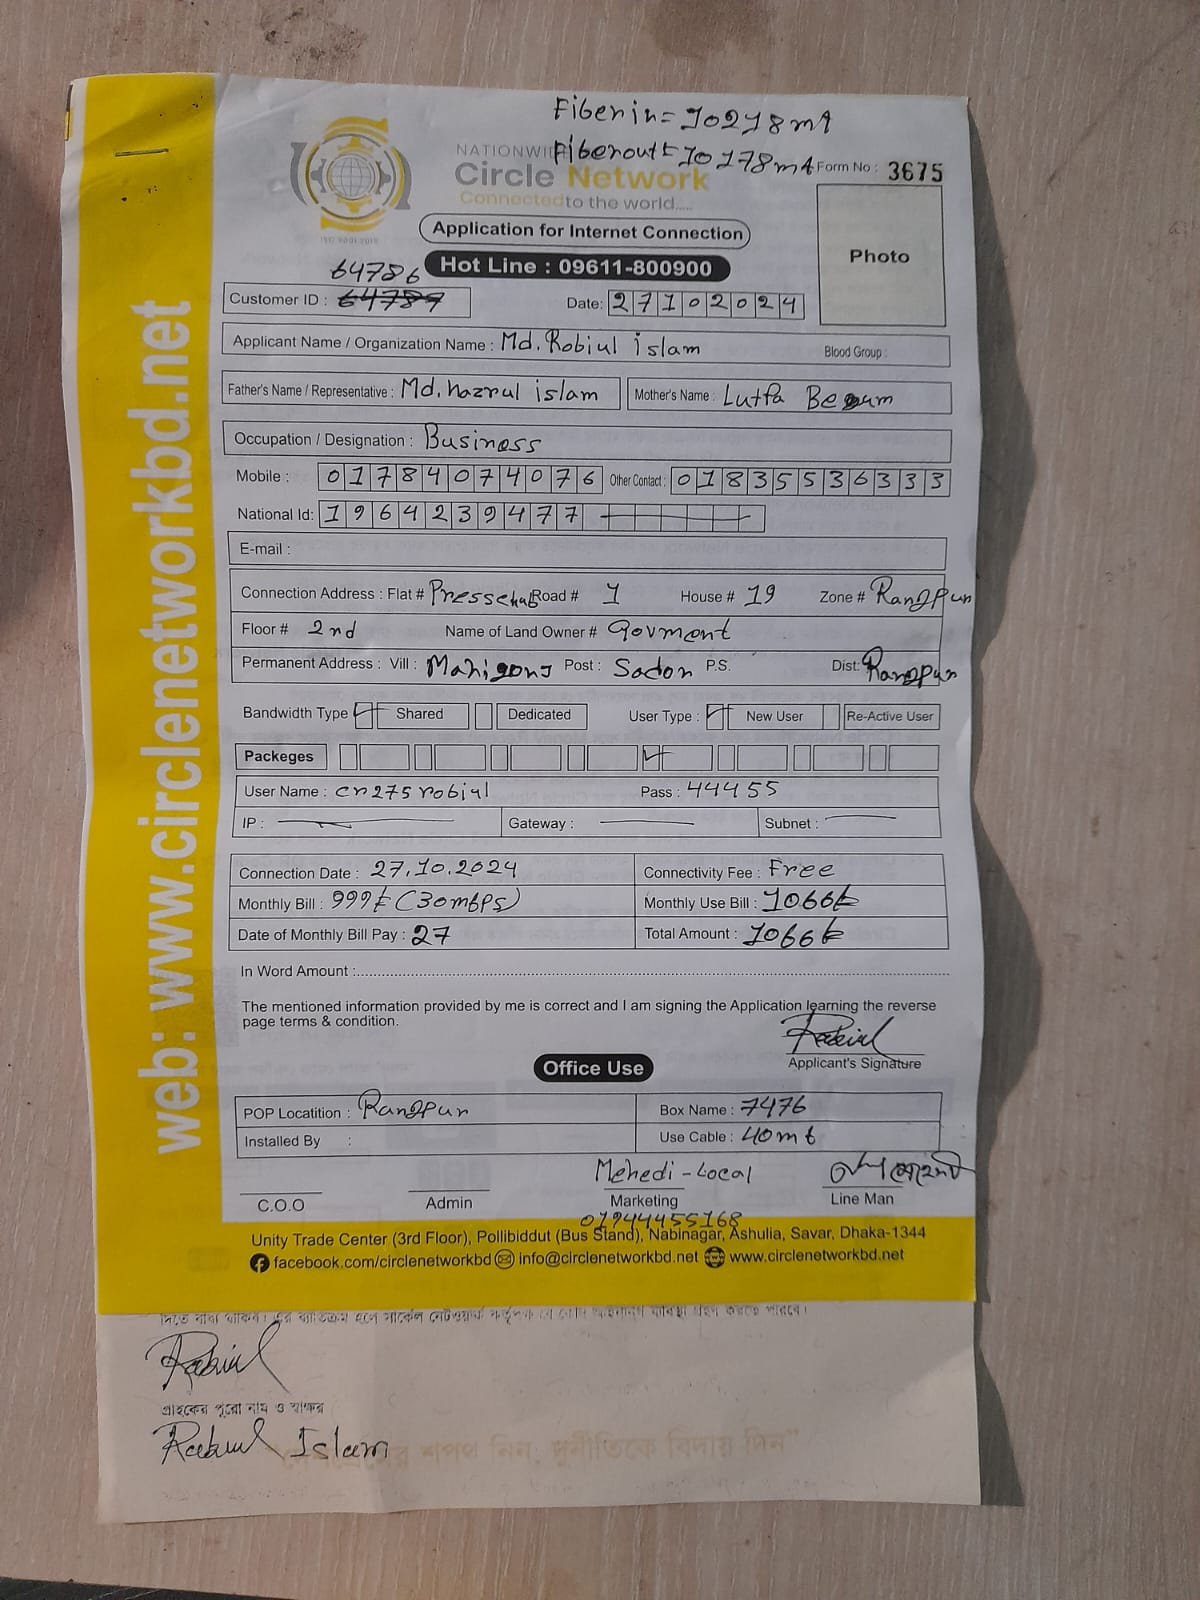 Fiber in = 10218 mt
Fiber out = 10178 mt
NATIONWI
Circle Network
Connected to the world.....
Form No : 3675
Application for Internet Connection
Photo
Hot Line : 09611-800900
64786
Customer ID : 64787
Date: 27102024
Applicant Name / Organization Name : Md. Robiul islam
Blood Group :
Father's Name / Representative : Md. nazrul islam
Mother's Name : Lutfa Begum
Occupation / Designation : Business
Mobile : 01784074076 Other Contact : 01835536333
National Id: 1964239477
E-mail :
Connection Address : Flat # Pressclub Road # 1 House # 19 Zone # Rangpur
Floor # 2nd Name of Land Owner # Govment
Permanent Address : Vill : Mahigonj Post : Sador P.S. Dist: Rangpur
Bandwidth Type Shared Dedicated User Type : New User Re-Active User
Packeges
User Name : cn275robiul Pass : 44455
IP : Gateway : Subnet :
Connection Date : 27.10.2024 Connectivity Fee : Free
Monthly Bill : 999৳ (30mbps) Monthly Use Bill : 1066৳
Date of Monthly Bill Pay : 27 Total Amount : 1066৳
In Word Amount :
The mentioned information provided by me is correct and I am signing the Application learning the reverse
page terms & condition.
Rabiul
Applicant's Signature
Office Use
POP Locatition : Rangpur Box Name : 7476
Installed By : Use Cable : 40mt
Mehedi - Local
C.O.O Admin Marketing Line Man
01944455168
Unity Trade Center (3rd Floor), Pollibiddut (Bus Stand), Nabinagar, Ashulia, Savar, Dhaka-1344
facebook.com/circlenetworkbd info@circlenetworkbd.net www.circlenetworkbd.net
web: www.circlenetworkbd.net
Rabiul
গ্রাহকের পুরো নাম ও স্বাক্ষর
Rabiul Islam
শপথ নিন, দুর্নীতিকে বিদায় দিন"